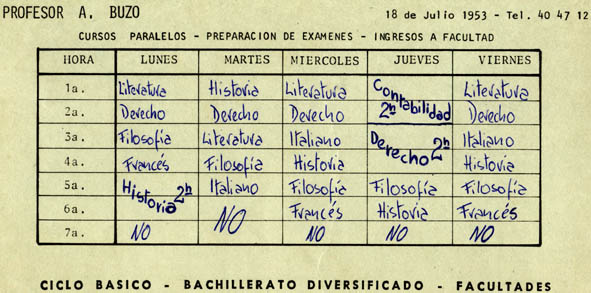 PROFESOR A. BUZO
18 de Julio 1953 - Tel. 40 47 12
CURSOS PARALELOS - PREPARACION DE EXAMENES - INGRESOS A FACULTAD
HORA LUNES MARTES MIERCOLES JUEVES VIERNES
1a. Literatura Historia Literatura Contabilidad 2h Literatura
2a. Derecho Derecho Derecho Derecho
3a. Filosofía Literatura Italiano Derecho 2h Italiano
4a. Francés Filosofía Historia Historia
5a. Historia 2h Italiano Filosofía Filosofía Filosofía
6a. NO Francés Historia Francés
7a. NO NO NO NO
CICLO BASICO - BACHILLERATO DIVERSIFICADO - FACULTADES